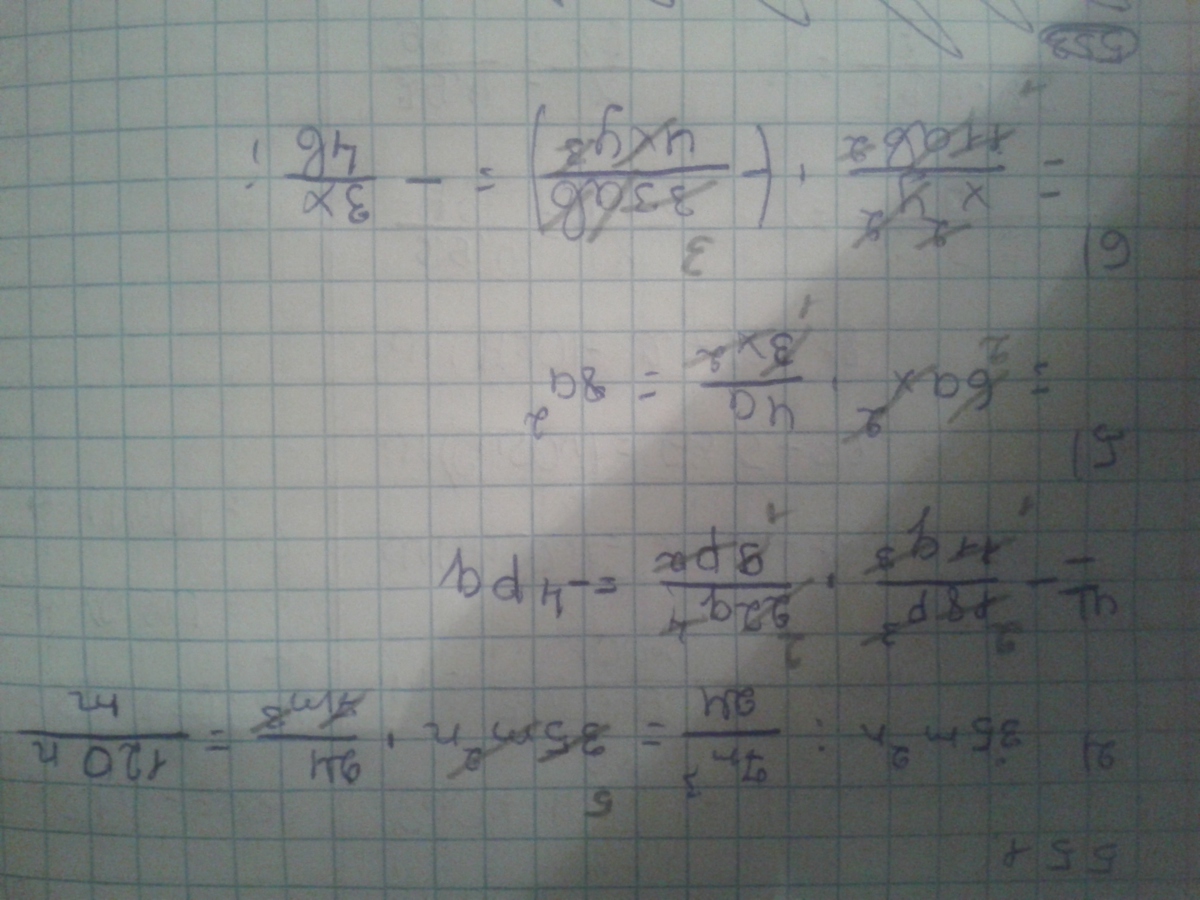 551
2) 35m²n : 7m³/24 = 35m²n · 24/7m³ = 120n/m
4) = - 18p³/11q³ · 22q⁴/9p² = -4pq
5)
= 6ax² · 4a/3x² = 8a²
6)
= x²y²/11ab² · (- 33ab/4xy²) = - 3x/4b ;
552